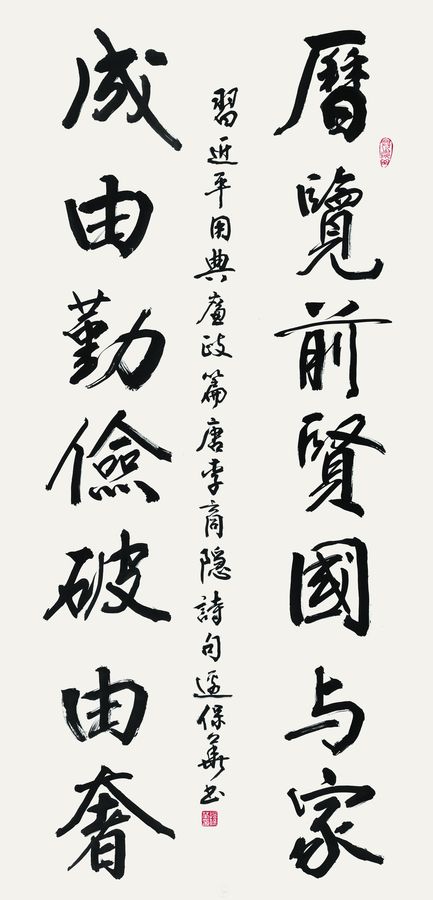 曆覽前賢國与家
習近平用典廉政篇唐李商隐詩句保華书
成由勤儉破由奢